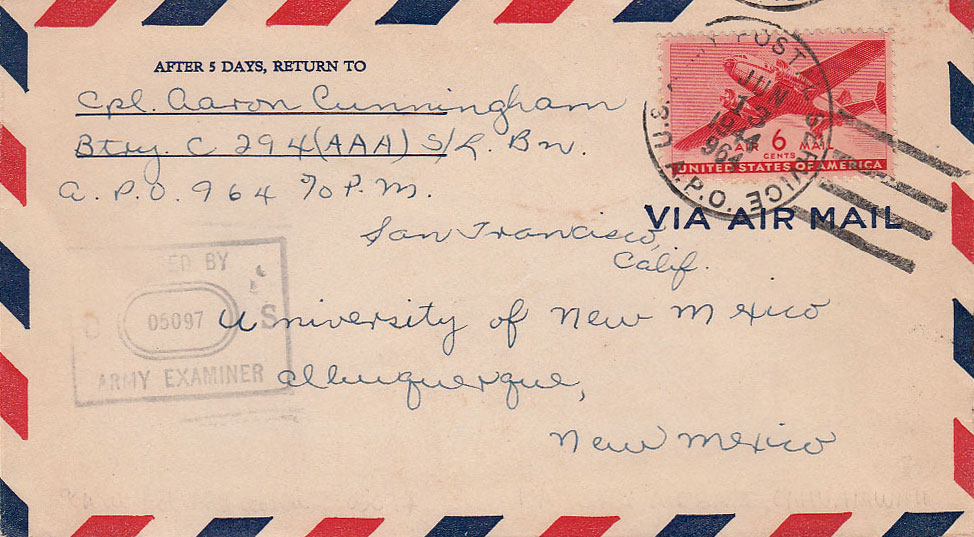 AFTER 5 DAYS, RETURN TO
Cpl. Aaron Cunningham
Btry. C 294 (AAA) S/L Bn.
A.P.O. 964 % P.M.
San Francisco,
Calif.
POST
SERVICE
U.S.
A.P.O.
JUN
13
1944
964
AIR 6 MAIL
CENTS
UNITED STATES OF AMERICA
VIA AIR MAIL
BY
S
05097
ARMY EXAMINER
University of New Mexico
Albuquerque,
New Mexico